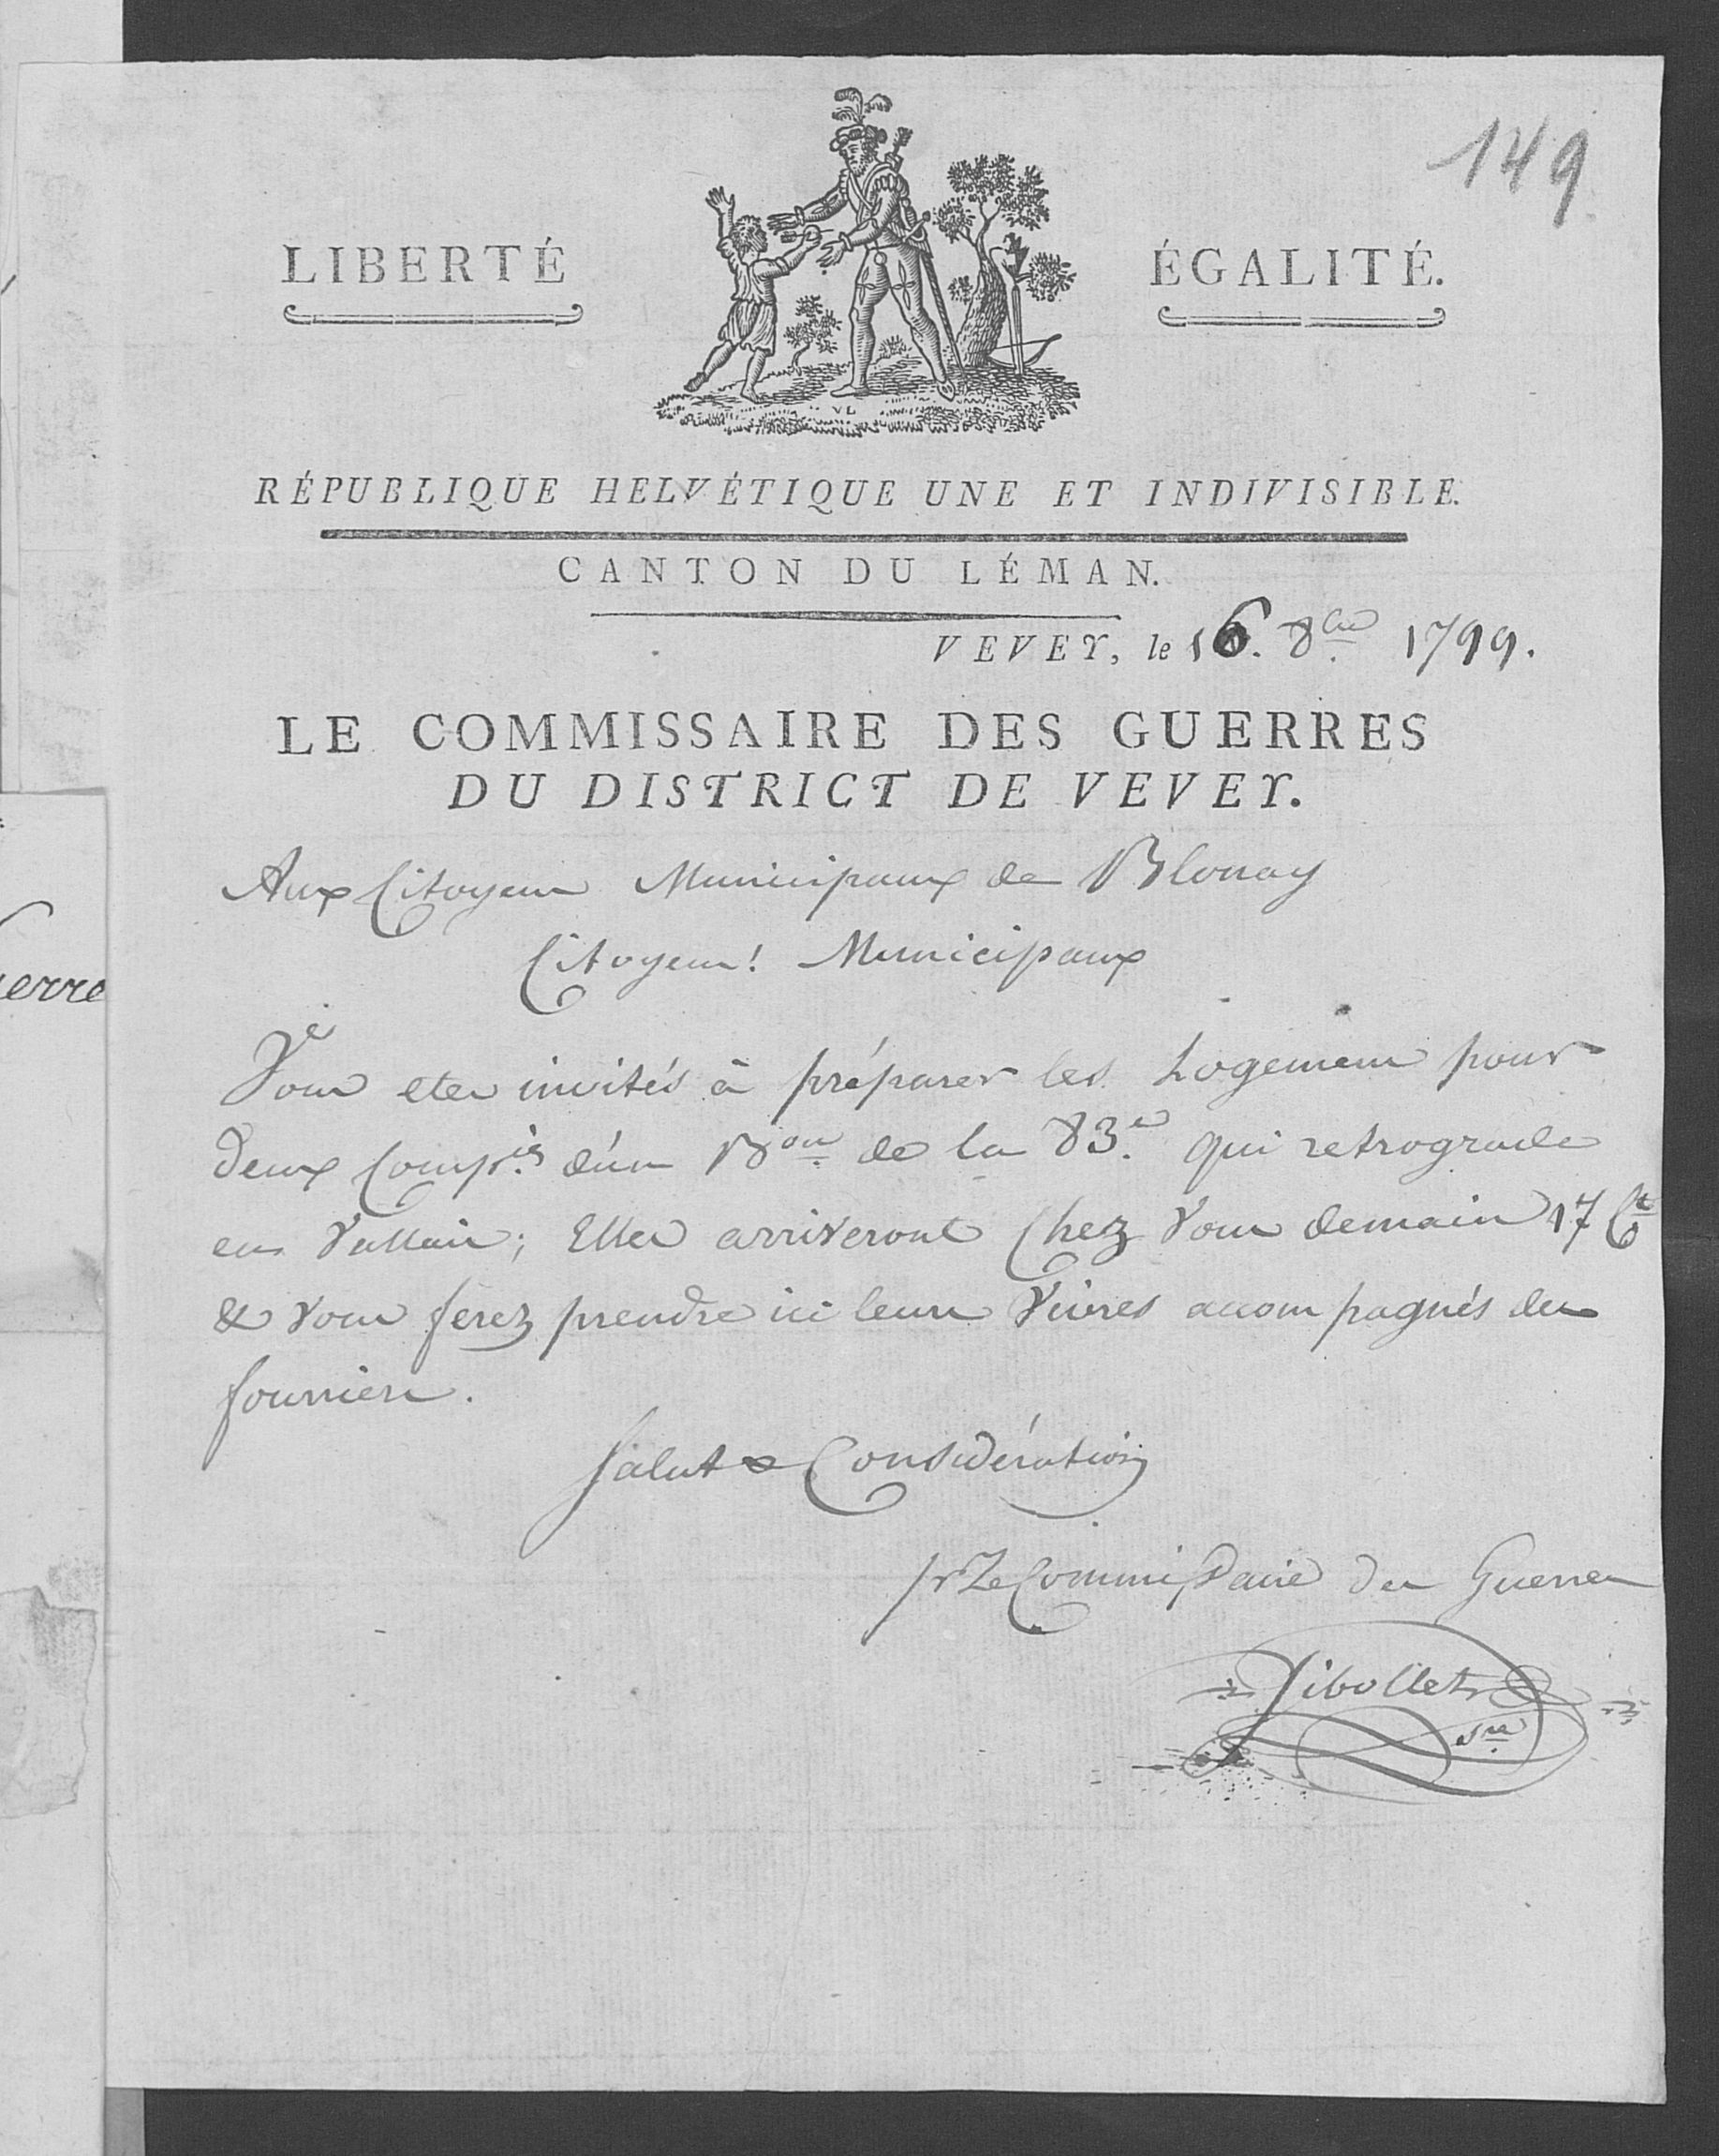 149
LIBERTÉ ÉGALITÉ.
VL
RÉPUBLIQUE HELVÉTIQUE UNE ET INDIVISIBLE.
CANTON DU LÉMAN.
VEVEY, le 16. 8bre 1799.
LE COMMISSAIRE DES GUERRES
DU DISTRICT DE VEVEY.
Aux Citoyens Municipaux de Blonay
Citoyens! Municipaux
Vous etes invités à préparer les Logemens pour
deux Compies d'un Bon de la 83e qui retrograde
en Vallais; Elles arriveront Chez Vous demain 17 Ct
& vous ferez prendre ici leurs Vivres accompagnés des
fourriers.
Salut & Considération
pr Le Commissaire des Guerres
Dibollet
sre
erre